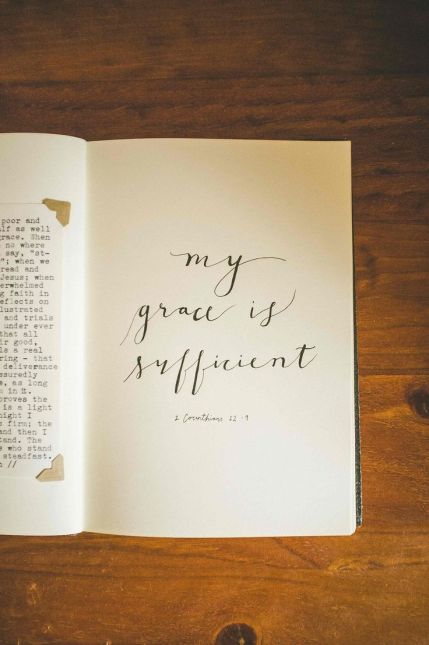 poor and
lf as well
grace. When
no where
say, "st-
"; when we
read and
Jesus; when
erwhelmed
g faith in
eflects on
lustrated
and trials
under ever
that all
ir good,
is a real
ring - that
deliverance
ssuredly
e, as long
m in it.
proves the
is a light
night I
s firm; the
and then I
tand. The
e who stand
steadfast.
n //
my
grace is
sufficient
2 Corinthians 12:9